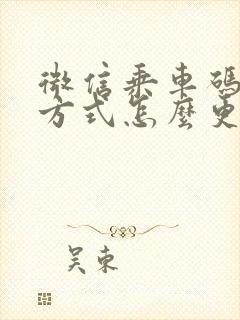 微信乘車碼
方式怎麼更
吴東